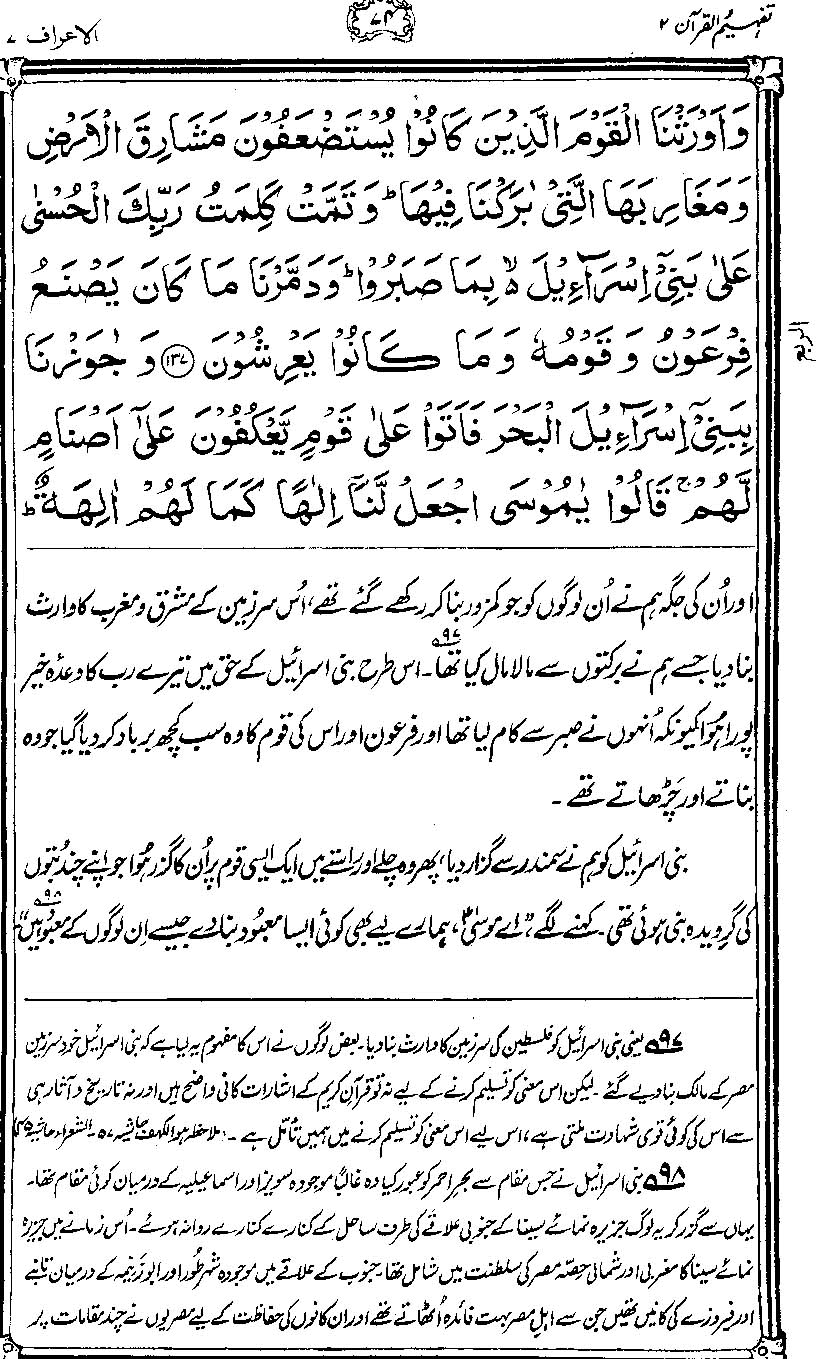 تفہیم القرآن ۲
۷۴
الاعراف ۷
وَاَوْرَثْنَا الْقَوْمَ الَّذِيْنَ كَانُوْا يُسْتَضْعَفُوْنَ مَشَارِقَ الْاَرْضِ
وَمَغَارِبَهَا الَّتِيْ بٰرَكْنَا فِيْهَا ؕ وَتَمَّتْ كَلِمَتُ رَبِّكَ الْحُسْنٰى
عَلٰى بَنِيْٓ اِسْرَآءِيْلَ ۙ بِمَا صَبَرُوْا ؕ وَدَمَّرْنَا مَا كَانَ يَصْنَعُ
فِرْعَوْنُ وَ قَوْمُهٗ وَمَا كَانُوْا يَعْرِشُوْنَ ﴿۱۳۷﴾ وَ جٰوَزْنَا
بِبَنِيْٓ اِسْرَآءِيْلَ الْبَحْرَ فَاَتَوْا عَلٰى قَوْمٍ يَّعْكُفُوْنَ عَلٰٓى اَصْنَامٍ
لَّهُمْ ۚ قَالُوْا يٰمُوْسَى اجْعَلْ لَّنَآ اِلٰهًا كَمَا لَهُمْ اٰلِهَةٌ ؕ
الربع
اور اُن کی جگہ ہم نے اُن لوگوں کو جو کمزور بنا کر رکھے گئے تھے، اُس سرزمین کے مشرق و مغرب کا وارث
بنا دیا جسے ہم نے برکتوں سے مالا مال کیا تھا۹۷۔ اس طرح بنی اسرائیل کے حق میں تیرے رب کا وعدۂ خیر
پورا ہوا کیونکہ اُنہوں نے صبر سے کام لیا تھا اور فرعون اور اس کی قوم کا وہ سب کچھ برباد کر دیا گیا جو وہ
بناتے اور چڑھاتے تھے۔
بنی اسرائیل کو ہم نے سمندر سے گزار دیا، پھر وہ چلے اور راستے میں ایک ایسی قوم پر اُن کا گزر ہوا جو اپنے چند بُتوں
کی گرویدہ بنی ہوئی تھی۔ کہنے لگے، ”اے موسیٰؑ، ہمارے لیے بھی کوئی ایسا معبُود بنا دے جیسے اِن لوگوں کے معبُود ہیں۹۸“
۹۷ یعنی بنی اسرائیل کو فلسطین کی سرزمین کا وارث بنا دیا۔ بعض لوگوں نے اس کا مفہوم یہ لیا ہے کہ بنی اسرائیل خود سرزمین
مصر کے مالک بنا دیے گئے۔ لیکن اس معنی کو تسلیم کرنے کے لیے نہ تو قرآن کریم کے اشارات کافی واضح ہیں اور نہ تاریخ و آثار ہی
سے اس کی کوئی قوی شہادت ملتی ہے، اس لیے اس معنی کو تسلیم کرنے میں ہمیں تأمّل ہے۔ (ملاحظہ ہو الکہف حاشیہ ۵۷۔ الشعراء حاشیہ
۹۸ بنی اسرائیل نے جس مقام سے بحرِ احمر کو عبور کیا وہ غالباً موجودہ سویز اور اسماعیلیہ کے درمیان کوئی مقام تھا۔
یہاں سے گزر کر یہ لوگ جزیرہ نمائے سینا کے جنوبی علاقے کی طرف ساحل کے کنارے کنارے روانہ ہوئے۔ اُس زمانے میں جزیرہ
نمائے سینا کا مغربی اور شمالی حصّہ مصر کی سلطنت میں شامل تھا۔ جنوب کے علاقے میں موجودہ شہر طُور اور ابو زنیمہ کے درمیان تانبے
اور فیروزے کی کانیں تھیں جن سے اہلِ مصر بہت فائدہ اُٹھاتے تھے اور ان کانوں کی حفاظت کے لیے مصریوں نے چند مقامات پر